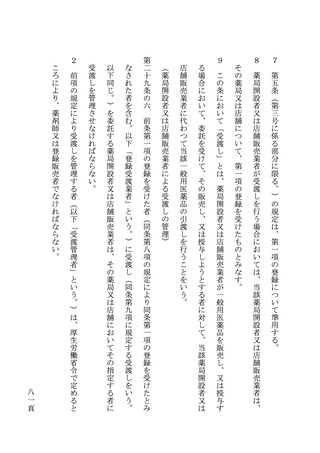 ７　第五条（第三号に係る部分に限る。）の規定は、第一項の登録について準用する。
８　薬局開設者又は店舗販売業者が受渡しを行う場合においては、当該薬局開設者又は店舗販売業者は、
その薬局又は店舗について、第一項の登録を受けたものとみなす。
９　この条において「受渡し」とは、薬局開設者又は店舗販売業者が一般用医薬品を販売し、又は授与す
る場合において、委託を受けて、その販売し、又は授与しようとする者に対して、当該薬局開設者又は
店舗販売業者に代わつて当該一般用医薬品の引渡しを行うことをいう。
（薬局開設者又は店舗販売業者による受渡しの管理）
第二十九条の六　前条第一項の登録を受けた者（同条第八項の規定により同条第一項の登録を受けたとみ
なされた者を含む。以下「登録受渡業者」という。）に受渡し（同条第九項に規定する受渡しをいう。
以下同じ。）を委託する薬局開設者又は店舗販売業者は、その薬局又は店舗においてその指定する者に
受渡しを管理させなければならない。
２　前項の規定により受渡しを管理する者（以下「受渡管理者」という。）は、厚生労働省令で定めると
ころにより、薬剤師又は登録販売者でなければならない。
八一頁